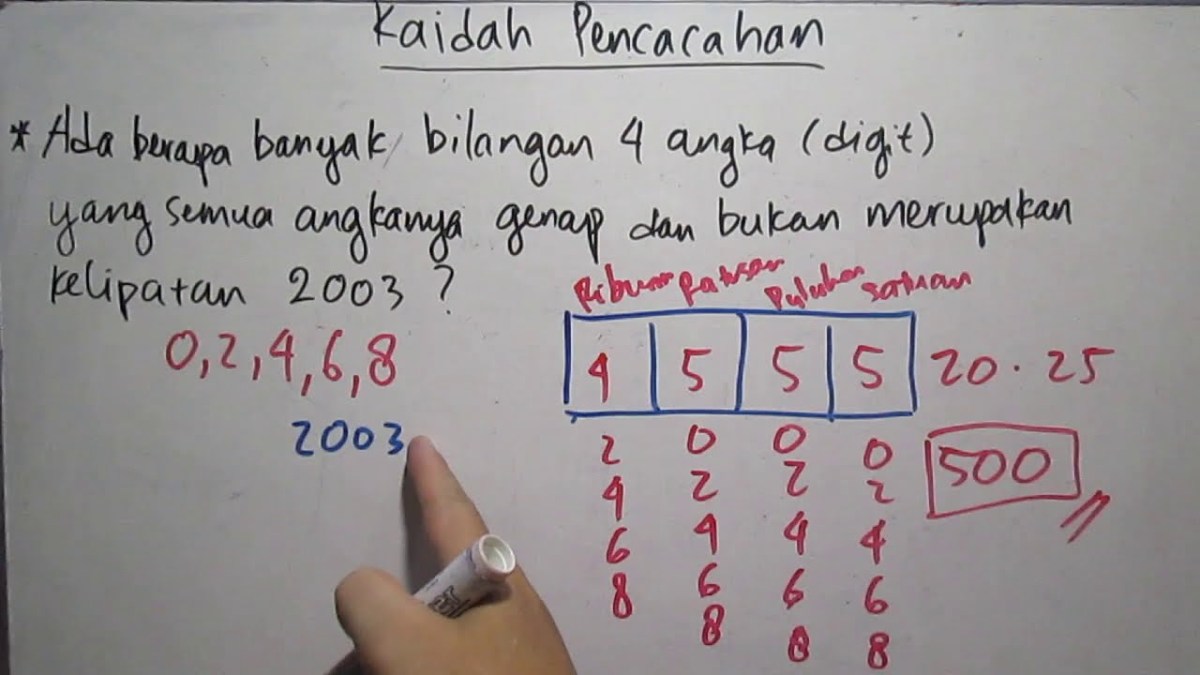 Kaidah Pencacahan
* Ada berapa banyak bilangan 4 angka (digit)
yang semua angkanya genap dan bukan merupakan
kelipatan 2003 ?
Ribuan Ratusan Puluhan Satuan
0, 2, 4, 6, 8
4 5 5 5 20 . 25
2003
2 0 0 0
4 2 2 2
6 4 4 4
8 6 6 6
8 8 8
500